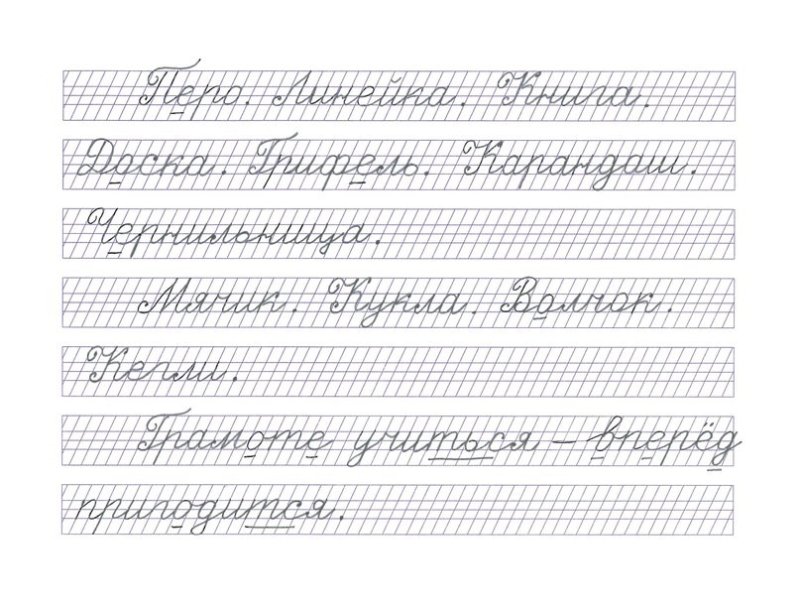 Перо. Линейка. Книга.
Доска. Грифель. Карандаш.
Чернильница.
Мячик. Кукла. Волчок.
Кегли.
Грамоте учиться – вперёд
пригодится.